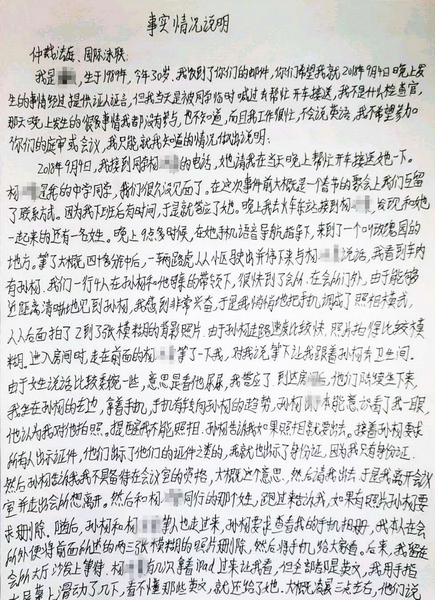 事实情况说明
仲裁法庭、国际泳联:
我是 生于1989年,今年30岁,我收到了你们的邮件,你们希望我就2018年9月4日晚上发
生的事情经过提供证人证言,但我当天是被同学临时喊过去帮忙开车接送,我不是什么检查官,
那天晚上发生的很多事情我都没有参与,也不知道,而且我工作很忙,不会说英语,我不希望参加
你们的庭审或会议,我只能就我知道的情况做出说明:
2018年9月4日,我接到同学杨 的电话,她请我在当天晚上帮忙开车接送她一下。
杨 是我的中学同学,我们很久没见面了。在这次事件前大概是一个春节的聚会上我们互留
了联系方式。因为我下班后有时间,于是就答应了她。晚上我去火车东站接到杨 发现和她
一起来的还有一名女性。晚上10点多时候,在她手机语音导航指导下,来到了一个叫玫瑰园的
地方。等了大概四十多分钟后,一辆路虎从小区驶出并停下来与杨 说话,我看到车内
有孙杨。我们一行4人在孙杨和他母亲的带领下,很快到了会所。在会所门外,由于能够
近距离清晰地见到孙杨,我感到非常兴奋,于是我悄悄地把手机调成了照相模式,
从后面拍了2到3张模糊的背影照片。由于孙杨走路速度比较快,照片拍得比较模
糊。进入房间时,走在前面的杨 等了一下我,对我说,等下让我跟着孙杨去卫生间。
由于女生说话比较委婉一些,意思是看他尿尿,我答应了。到达房间后,他们陆续坐下来,
我坐在孙杨的右边,拿着手机,手机有转向孙杨的趋势,孙杨 本能意识看了我一眼,
他认为我对他拍照。提醒我不能照相。孙杨告诉我如果照相就要出去。接着孙杨要求
所有人出示证件,他们出示了他们的证件2类的,我就也出示了身份证,因为我只有身份证。
然后孙杨告诉我我不具备待在会议室的资格,大概这个意思,然后请我出去,于是我离开会议
室并走出会所想离开。然后和杨 同行的那个女生,跑过来告诉我,如果有照片孙杨要
求删除。随后,孙杨和杨 等人也走过来,孙杨要求查看我的手机相册,我本人在会
所外便将前面所述的两三张模糊的照片删除,然后将手机给大家看。后来,我留在
会所大厅沙发上等待。杨 有几次拿着iPad过来让我看,但全部都是英文,我用手指
上屏幕上滑动了几下,看不懂那些英文,就还给了她。大概凌晨三点左右,他们说